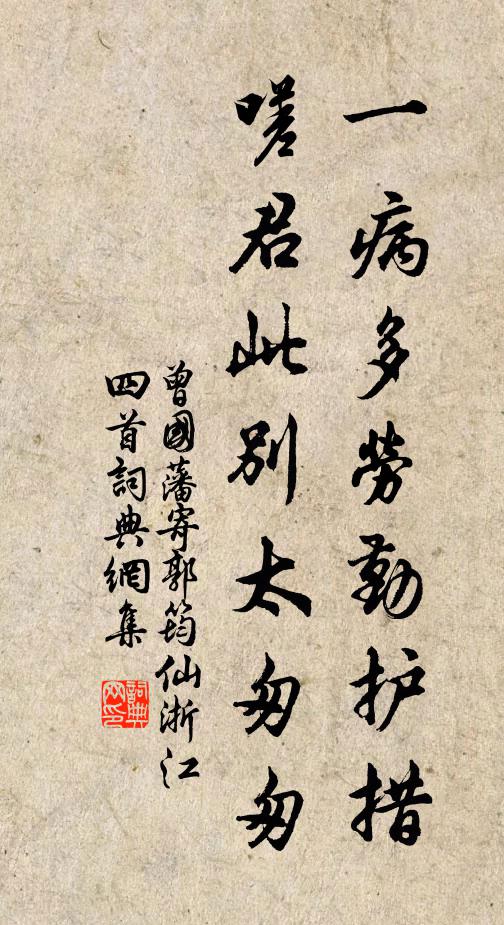 一病多勞勤护措
嗟君此別太匆匆
曾國藩寄郭筠仙浙江
四首詞典網集
詞典網印